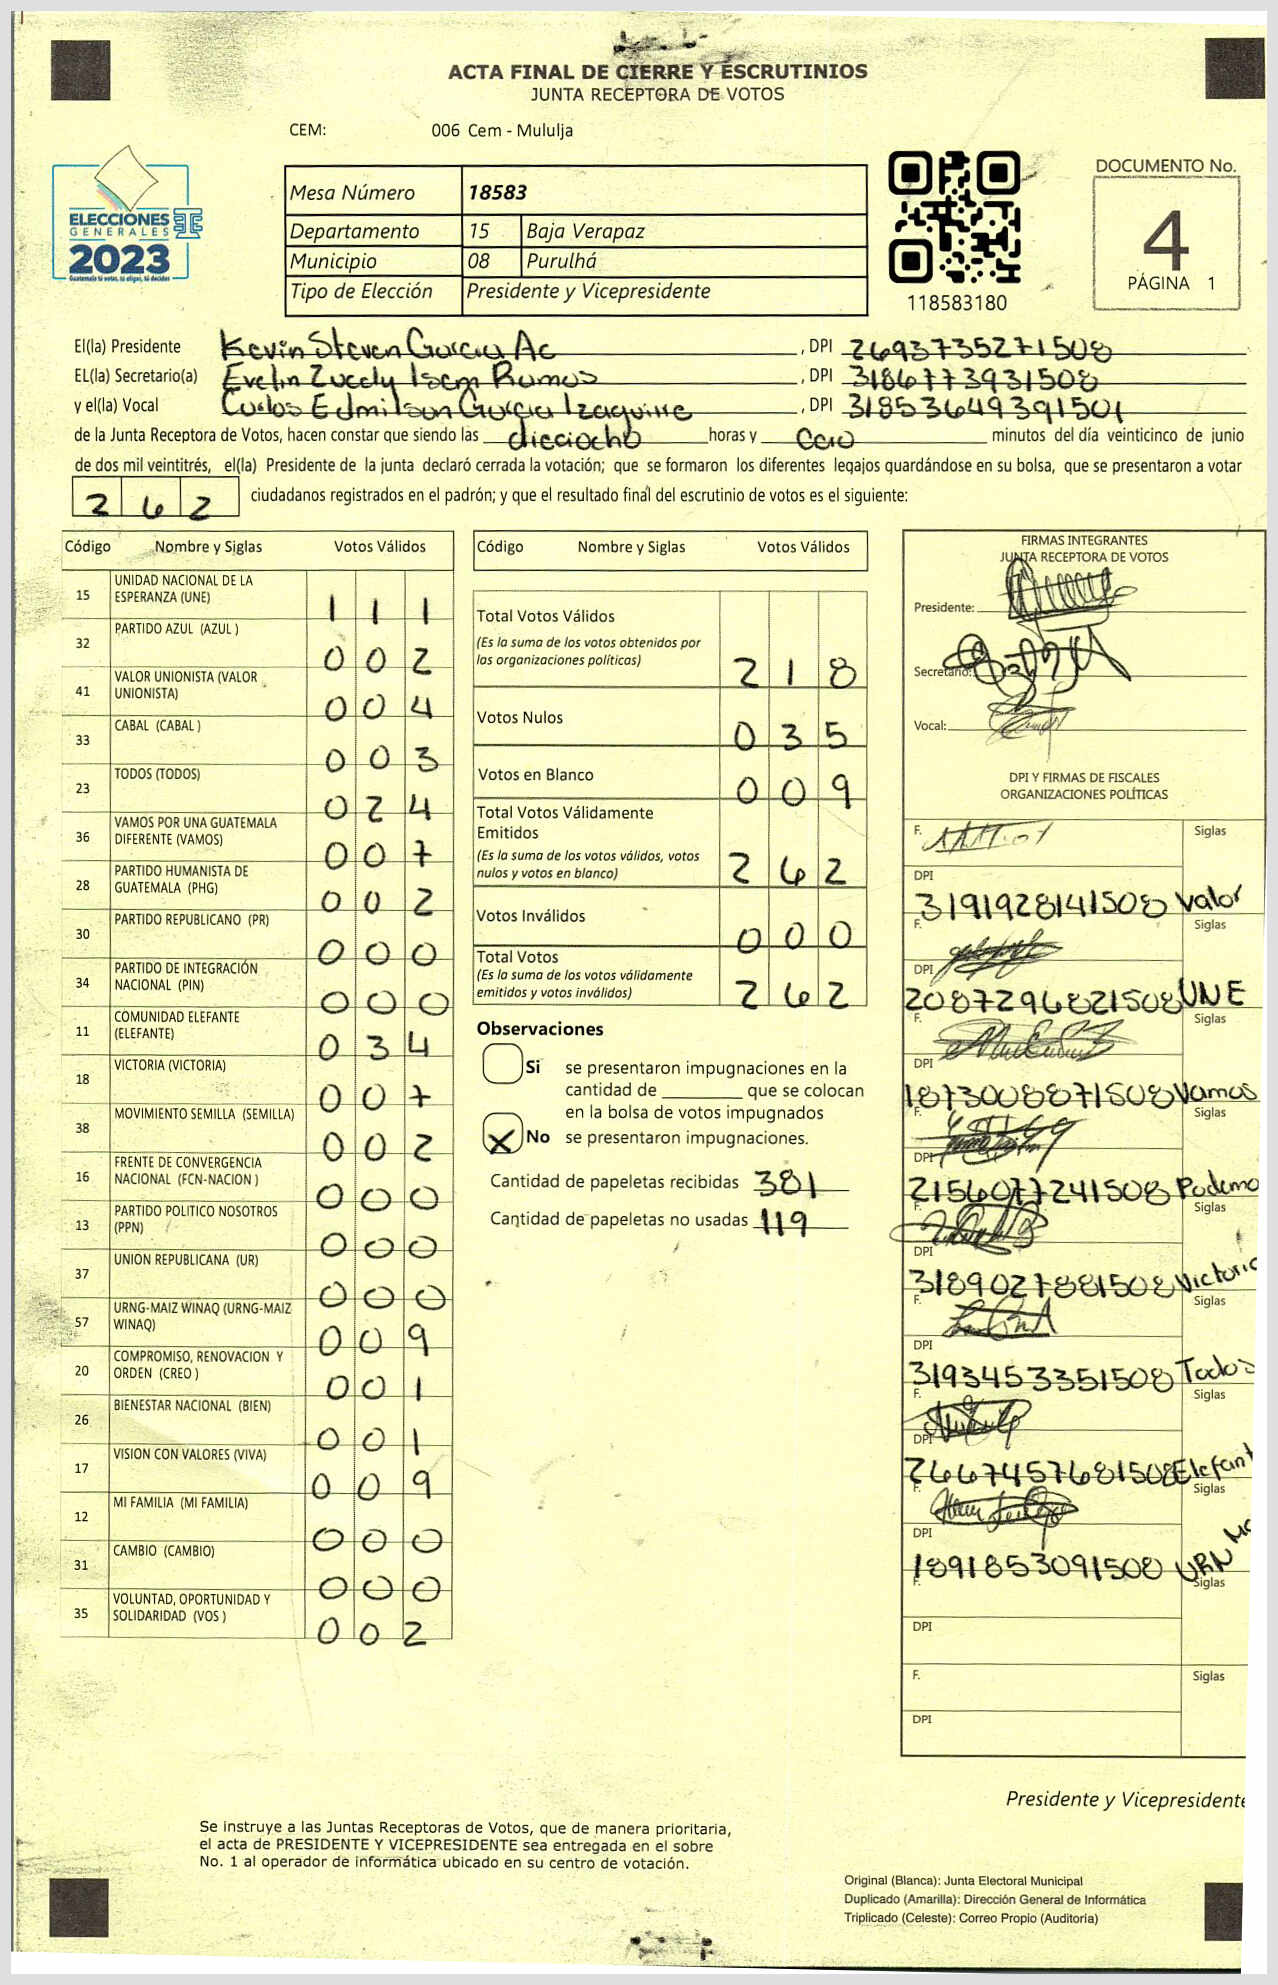 ACTA FINAL DE CIERRE Y ESCRUTINIOS
JUNTA RECEPTORA DE VOTOS
CEM: 006 Cem - Mululja
ELECCIONES
GENERALES
2023
Guatemala tú votas, tú eliges, tú decides
Mesa Número 18583
Departamento 15 Baja Verapaz
Municipio 08 Purulhá
Tipo de Elección Presidente y Vicepresidente
118583180
DOCUMENTO No.
4
PÁGINA 1
El(la) Presidente Kevin Steven Garcia Ac , DPI 2693735271508
EL(la) Secretario(a) Evelin Zucely Isem Ramos , DPI 3186773931508
y el(la) Vocal Carlos Edmilson Garcia Izaguirre , DPI 31853649391501
de la Junta Receptora de Votos, hacen constar que siendo las dieciocho horas y cero minutos del día veinticinco de junio
de dos mil veintitrés, el(la) Presidente de la junta declaró cerrada la votación; que se formaron los diferentes legajos guardándose en su bolsa, que se presentaron a votar
262 ciudadanos registrados en el padrón; y que el resultado final del escrutinio de votos es el siguiente:
Código Nombre y Siglas Votos Válidos
15 UNIDAD NACIONAL DE LA ESPERANZA (UNE) 111
32 PARTIDO AZUL (AZUL ) 002
41 VALOR UNIONISTA (VALOR UNIONISTA) 004
33 CABAL (CABAL ) 003
23 TODOS (TODOS) 024
36 VAMOS POR UNA GUATEMALA DIFERENTE (VAMOS) 007
28 PARTIDO HUMANISTA DE GUATEMALA (PHG) 002
30 PARTIDO REPUBLICANO (PR) 000
34 PARTIDO DE INTEGRACIÓN NACIONAL (PIN) 000
11 COMUNIDAD ELEFANTE (ELEFANTE) 034
18 VICTORIA (VICTORIA) 007
38 MOVIMIENTO SEMILLA (SEMILLA) 002
16 FRENTE DE CONVERGENCIA NACIONAL (FCN-NACION ) 000
13 PARTIDO POLITICO NOSOTROS (PPN) 000
37 UNION REPUBLICANA (UR) 000
57 URNG-MAIZ WINAQ (URNG-MAIZ WINAQ) 009
20 COMPROMISO, RENOVACION Y ORDEN (CREO ) 001
26 BIENESTAR NACIONAL (BIEN) 001
17 VISION CON VALORES (VIVA) 009
12 MI FAMILIA (MI FAMILIA) 000
31 CAMBIO (CAMBIO) 000
35 VOLUNTAD, OPORTUNIDAD Y SOLIDARIDAD (VOS ) 002
Código Nombre y Siglas Votos Válidos
Total Votos Válidos 218
(Es la suma de los votos obtenidos por
las organizaciones políticas)
Votos Nulos 035
Votos en Blanco 009
Total Votos Válidamente
Emitidos
(Es la suma de los votos válidos, votos
nulos y votos en blanco) 262
Votos Inválidos 000
Total Votos
(Es la suma de los votos válidamente
emitidos y votos inválidos) 262
Observaciones
Si se presentaron impugnaciones en la
cantidad de ________ que se colocan
en la bolsa de votos impugnados
X No se presentaron impugnaciones.
Cantidad de papeletas recibidas 381
Cantidad de papeletas no usadas 119
FIRMAS INTEGRANTES
JUNTA RECEPTORA DE VOTOS
Presidente:
Secretario:
Vocal:
DPI Y FIRMAS DE FISCALES
ORGANIZACIONES POLÍTICAS
F. Siglas
DPI
3191928141508 Valor
F. Siglas
DPI
2087296821508 UNE
F. Siglas
DPI
1873008871508 Vamos
F. Siglas
DPI
2156077241508 Podemo
F. Siglas
DPI
3189027881508 Victoria
F. Siglas
DPI
3193453351508 Todos
F. Siglas
DPI
2667457681508 Elefant
F. Siglas
DPI
1891853091508 URN
F. Siglas
DPI
F. Siglas
DPI
Presidente y Vicepresidente
Se instruye a las Juntas Receptoras de Votos, que de manera prioritaria,
el acta de PRESIDENTE Y VICEPRESIDENTE sea entregada en el sobre
No. 1 al operador de informática ubicado en su centro de votación.
Original (Blanca): Junta Electoral Municipal
Duplicado (Amarilla): Dirección General de Informática
Triplicado (Celeste): Correo Propio (Auditoria)